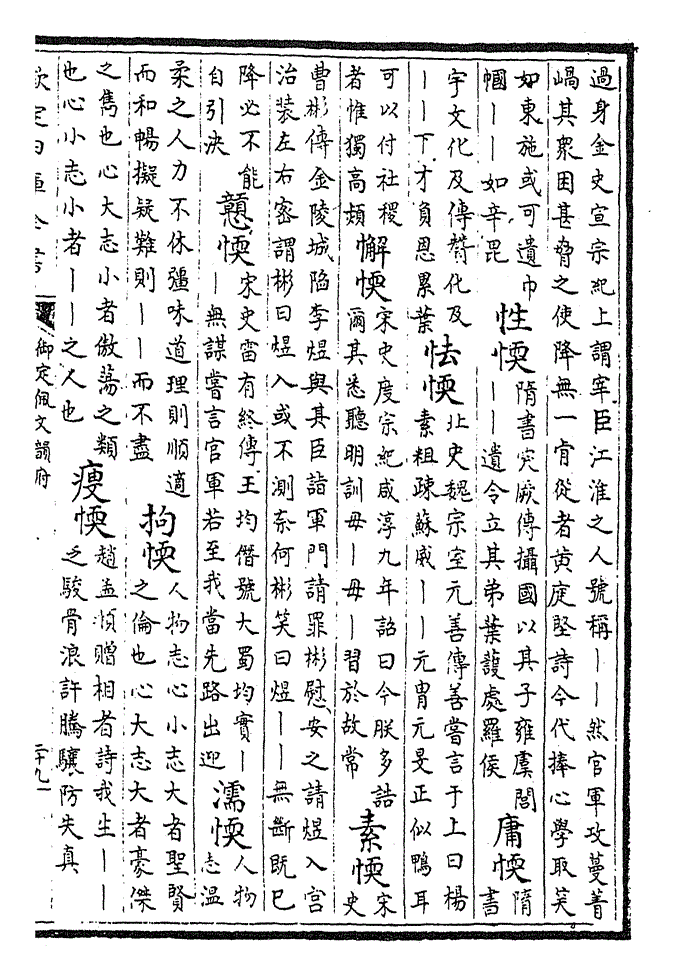 過身金史宣宗紀上謂宰臣江淮之人號稱丨丨然官軍攻蔓菁
嵑其衆困甚脅之使降無一肯從者黄庭堅詩今代捧心學取笑
如東施或可遺巾
幗丨丨如辛毘
性愞
隋書突厥傳攝國以其子雍虞閭
丨丨遺令立其弟葉護處羅侯
庸愞
隋
書
宇文化及傳贊化及
丨丨下才負恩累葉
怯愞
北史魏宗室元善傳善嘗言于上曰楊
素粗疎蘇威丨丨元胄元旻正似鴨耳
可以付社稷
者惟獨高熲
懈愞
宋史度宗紀咸淳九年詔曰今朕多誥
爾其悉聽明訓毋丨毋丨習於故常
素愞
宋
史
曹彬傳金陵城陷李煜與其臣詣軍門請罪彬慰安之請煜入宫
治裝左右密謂彬曰煜入或不測奈何彬笑曰煜丨丨無斷既已
降必不能
自引決
戇愞
宋史雷有終傳王均僭號大蜀均實丨
丨無謀嘗言官軍若至我當先路出迎
濡愞
人物
志温
柔之人力不休彊味道理則順適
而和暢擬疑難則丨丨而不盡
拘愞
人物志心小志大者聖賢
之倫也心大志大者豪傑
之雋也心大志小者傲蕩之類
也心小志小者丨丨之人也
瘦愞
趙孟頫贈相者詩我生丨丨
之駿骨浪許騰驤防失真
欽定四庫全書
御定佩文韻府
二十九